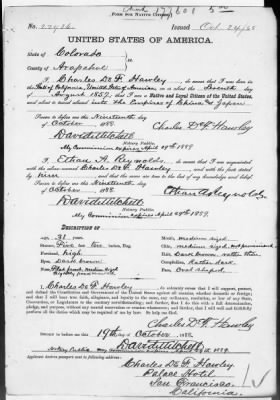 FORM FOR NATIVE CITIZEN.
No. 22936 Issued Oct 24/88
UNITED STATES OF AMERICA.
State of Colorado
County of Arapahoe
I, Charles De F. Hawley, do swear that I was born in the
State of California, United States of America, on or about the Seventh day
of August, 1857, that I am a Native and Loyal Citizen of the United States,
and about to travel abroad into The Empires of China and Japan
Sworn to before me this Nineteenth day
of October 1888. Charles De F. Hawley
David Mitchell
Notary Public.
My Commission expires April 29th 1889.
I, Ethan A. Reynolds, do swear that I am acquainted
with the above named Charles De F. Hawley and with the facts stated
by him and that the same are true to the best of my knowledge and belief.
Sworn to before me this Nineteenth day
of October 1888. Ethan A. Reynolds
David Mitchell
Notary Public.
My Commission expires April 29th 1889.
DESCRIPTION OF
Age: 31 years Mouth: medium sized
Stature: Five feet ten inches, Eng. Chin: medium sized
Forehead: high Hair: Dark brown
Eyes: Dark brown Complexion: Rather dark
Nose: medium sized Face: Oval shaped
I, Charles De F. Hawley, do solemnly swear that I will support, protect,
and defend the Constitution and Government of the United States against all enemies, whether domestic or foreign;
and that I will bear true faith, allegiance, and loyalty to the same, any ordinance, resolution, or law of any State,
Convention, or Legislature to the contrary notwithstanding; and further, that I do this with a full determination,
pledge, and purpose, without any mental reservation or evasion whatsoever; and further, that I will well and faithfully
perform all the duties which may be required of me by law: So help me God.
Charles De F. Hawley
Sworn to before me this 19th day of October 1888.
David Mitchell
Notary Public
Applicant desires passport sent to following address:
Charles De F. Hawley
Palace Hotel
San Francisco
California.